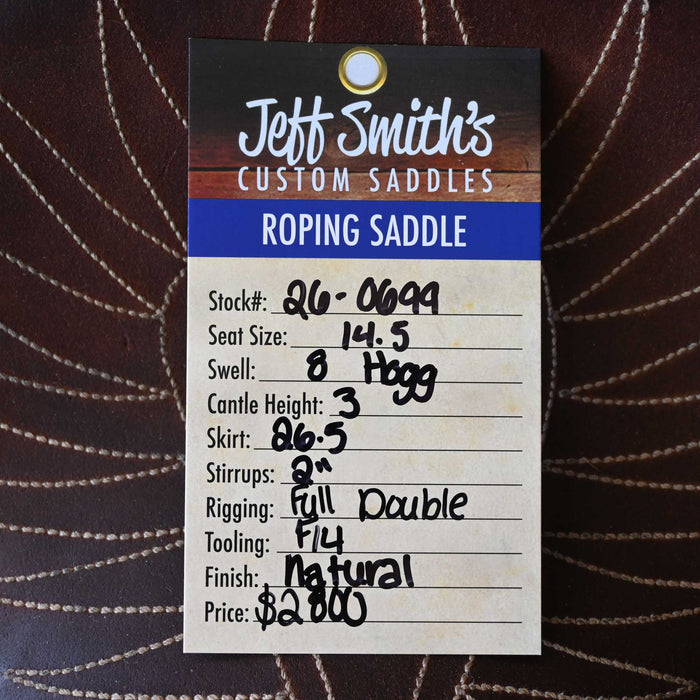 Jeff Smith's
CUSTOM SADDLES
ROPING SADDLE
Stock#: 26-0699
Seat Size: 14.5
Swell: 8 Hogg
Cantle Height: 3
Skirt: 26.5
Stirrups: 2"
Rigging: Full Double
Tooling: F14
Finish: Natural
Price: $2800